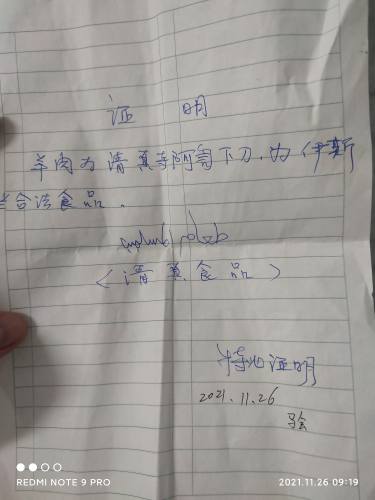 证 明
羊肉为清真寺阿訇下刀，为伊斯
兰合法食品．
〈清真食品〉
特此证明
2021.11.26
REDMI NOTE 9 PRO
2021.11.26 09:19